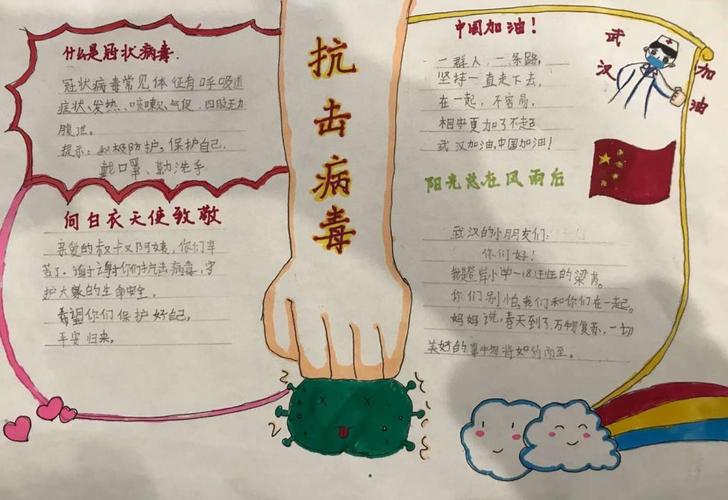 什么是冠状病毒.
冠状病毒常见体征有呼吸道
症状、发热、咳嗽、气促、四肢乏力
腹泄。
提示：积极防护，保护自己.
戴口罩、勤洗手
向白衣天使致敬
亲爱的叔叔阿姨，你们辛
苦了.谢于你们抗击病毒，守
护大家的生命安全。
希望你们保护好自己，
平安归来。
抗击病毒
中国加油！
一群人，一条路，
坚持一直走下去，
在一起，不容易，
相守更加了不起
武汉加油，中国加油！
武汉
加油
阳光总在风雨后
武汉的小朋友们：
你们好！
我是小学一18班的梁
你们别怕我们和你们在一起。
妈妈说，春天到了，万物复苏，一切
美好的事物将如约而至。